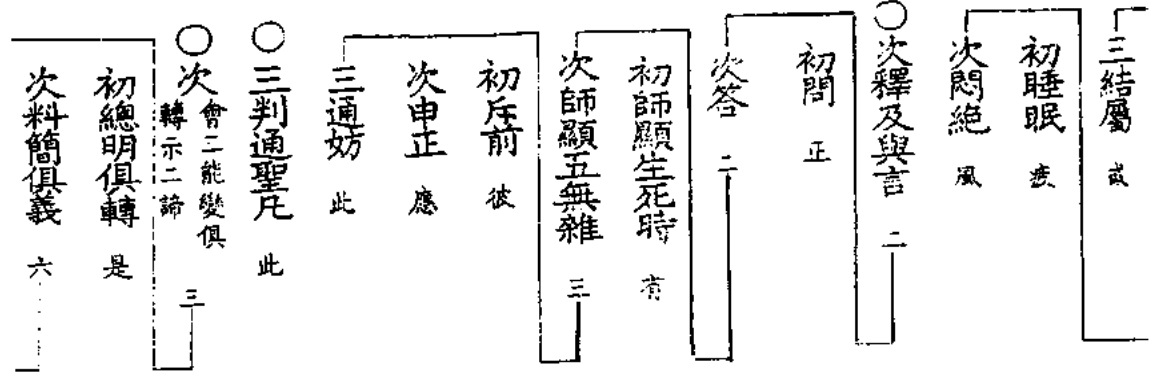 三結屬 或
初睡眠 疲
次悶絕 風
○次釋及與言 二
初問 正
次答 二
初師顯生死時 有
次師顯五無雜 三
初斥前 彼
次申正 應
三通妨 此
○三判通聖凡 此
○次會二能變俱轉示二諦 三
初總明俱轉 是
次料簡俱義 六